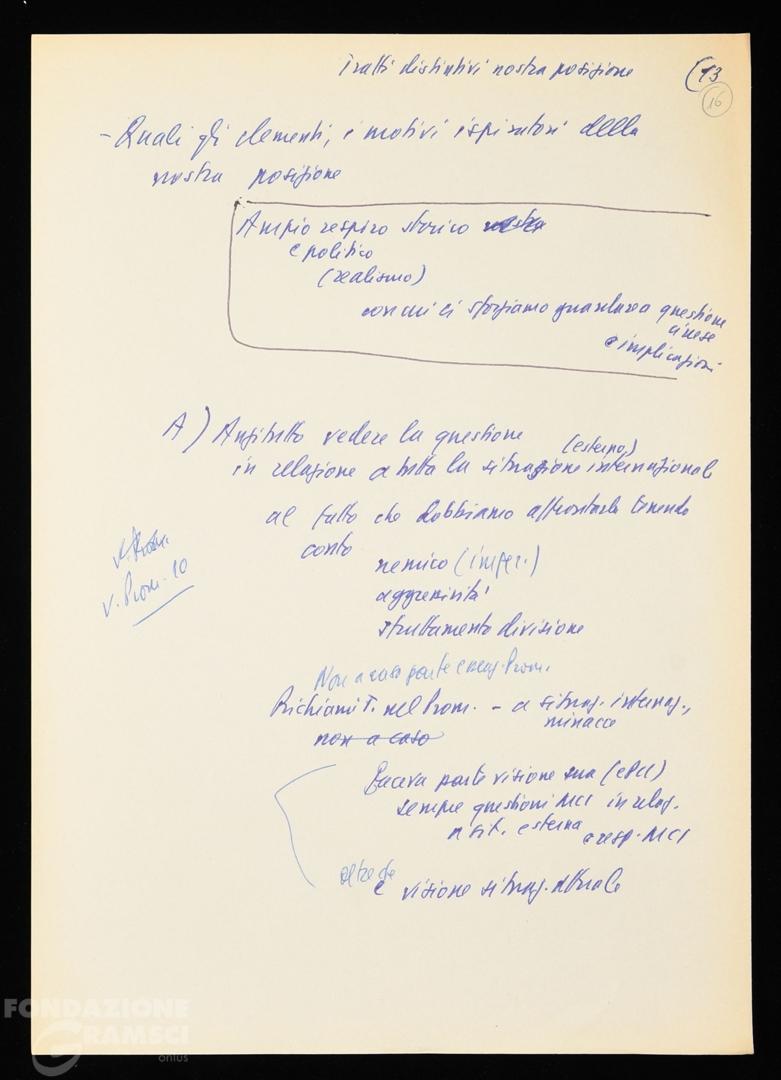 Tratti distintivi nostra posizione
(13
16
- Quali gli elementi, i motivi ispiratori della
nostra posizione
Ampio respiro storico nostra
e politico
(realismo)
con cui ci sforziamo guardare a questione
cinese
e implicazioni
A) Anzitutto vedere la questione
(esterno)
in relazione a tutta la situazione internazionale
al fatto che dobbiamo affrontarla tenendo
conto
nemico (imper.)
aggressività
sfruttamento divisione
v. Prom. 10
Non a caso parte e neg. Prom.
Richiami T. nel Prom. - a situaz. internaz.,
minacce
non a caso
Faceva parte visione sua (e PCI)
sempre questioni MCI in relaz.
a sit. esterna
e resp. MCI
oltre che
e visione situaz. attuale
FONDAZIONE
GRAMSCI
onlus